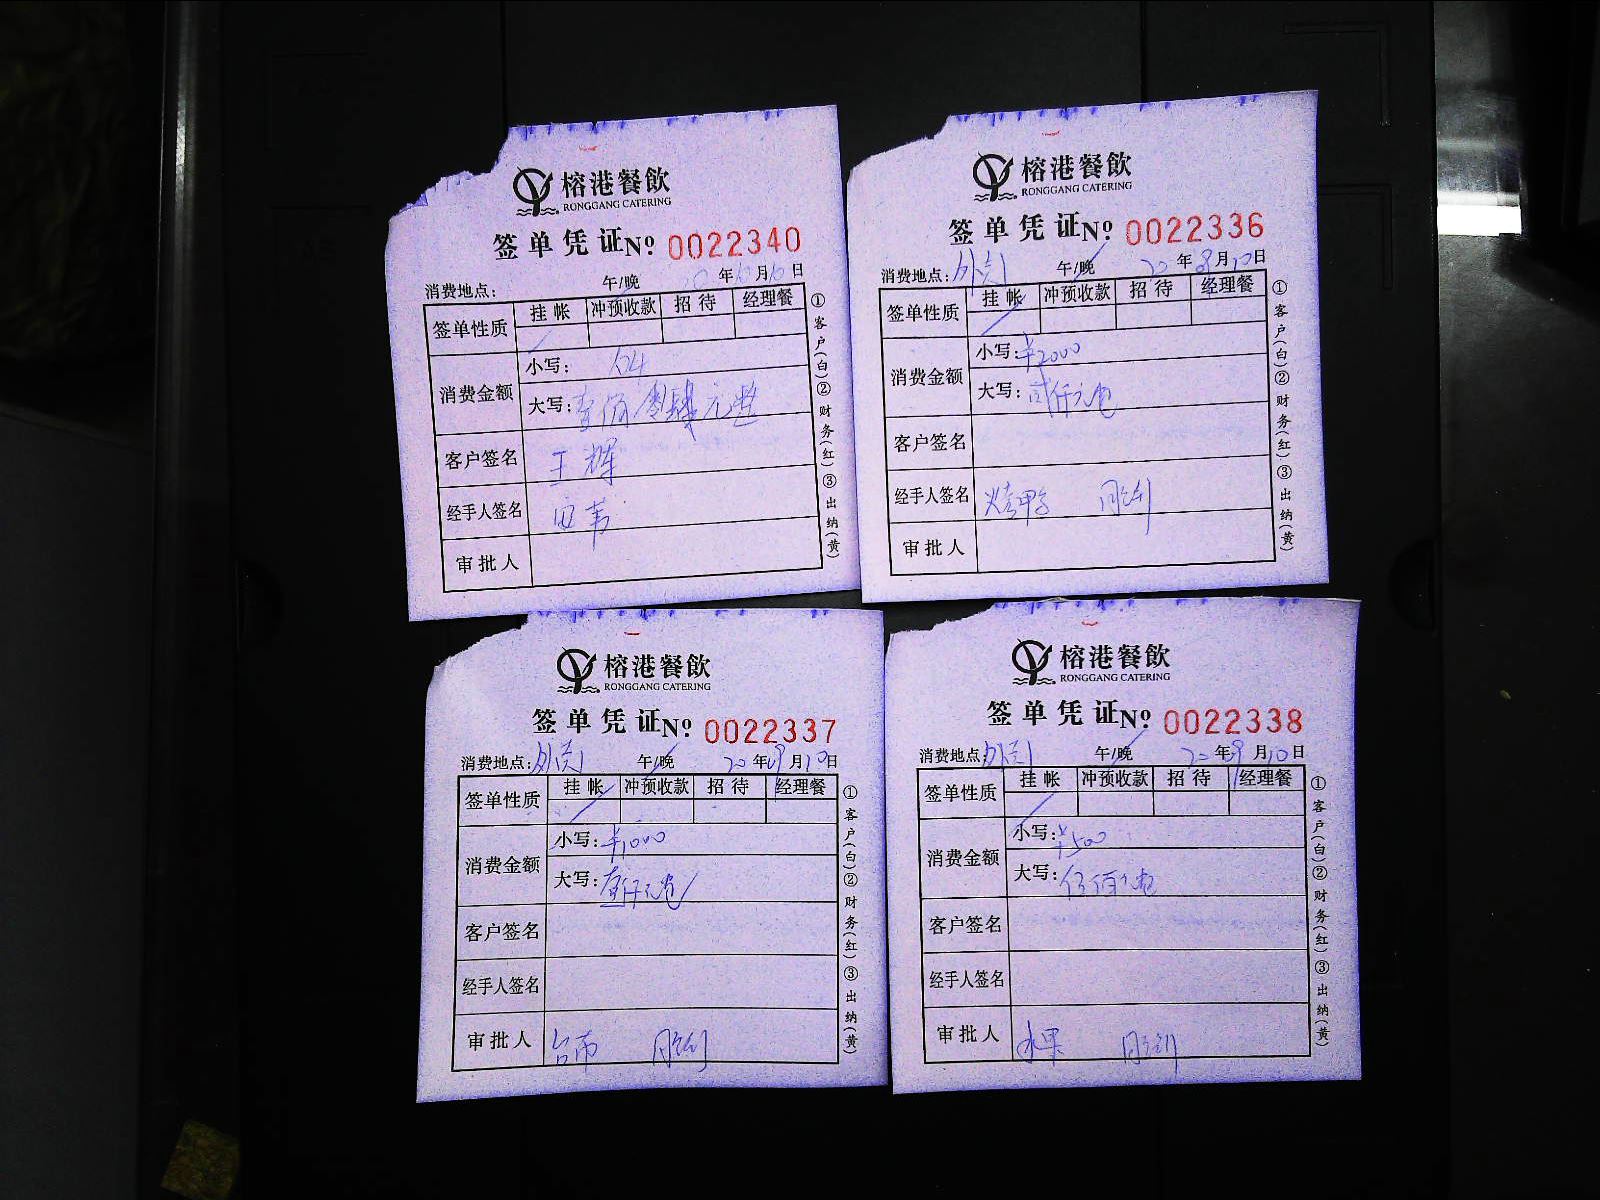 榕港餐飲
RONGGANG CATERING
签单凭证No 0022340
消费地点: 午/晚 年 月 日
签单性质 挂帐 冲预收款 招待 经理餐
消费金额 小写: 104
大写: 壹佰零肆元整
客户签名 王辉
经手人签名
审批人
①客户(白)②财务(红)③出纳(黄)
榕港餐飲
RONGGANG CATERING
签单凭证No 0022336
消费地点: 外卖 午/晚 20年9月10日
签单性质 挂帐 冲预收款 招待 经理餐
消费金额 小写: ¥2000
大写: 贰仟元整
客户签名
经手人签名 烤鸭
审批人
①客户(白)②财务(红)③出纳(黄)
榕港餐飲
RONGGANG CATERING
签单凭证No 0022337
消费地点: 外卖 午/晚 20年9月10日
签单性质 挂帐 冲预收款 招待 经理餐
消费金额 小写: ¥1000
大写: 壹仟元整
客户签名
经手人签名
审批人 台南
①客户(白)②财务(红)③出纳(黄)
榕港餐飲
RONGGANG CATERING
签单凭证No 0022338
消费地点: 外卖 午/晚 20年9月10日
签单性质 挂帐 冲预收款 招待 经理餐
消费金额 小写: ¥500
大写: 伍佰元整
客户签名
经手人签名
审批人 水果
①客户(白)②财务(红)③出纳(黄)